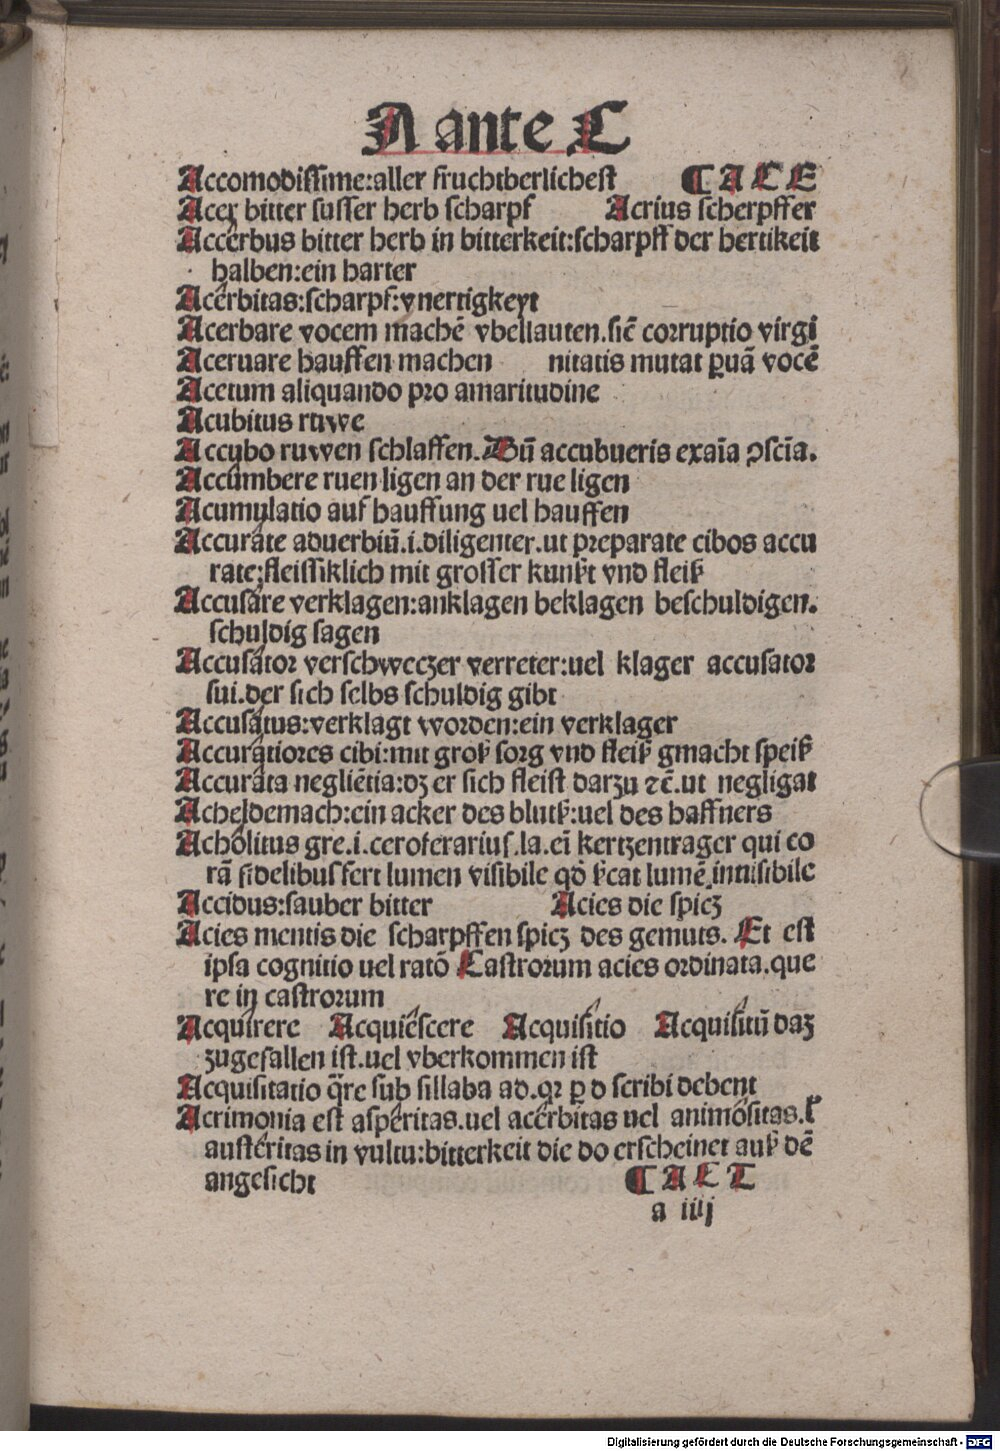 A ante C
Accomodissime:aller fruchtberlichest ¶ A C E
Acer bitter susser herb scharpf Acrius scherpffer
Accerbus bitter herb in bitterkeit:scharpff der hertikeit
halben:ein harter
Acerbitas:scharpf:vnertigkeyt
Acerbare vocem machē vbellauten.siē corruptio virgi
Aceruare hauffen machen nitatis mutat ꝑuā vocē
Acetum aliquando pro amaritudine
Acubitus ruwe
Accubo ruwen schlaffen. Dū accubueris exaīa ꝯscīa.
Accumbere ruen ligen an der rue ligen
Acumulatio auf hauffung uel hauffen
Accurate aduerbiū.i.diligenter.ut preparate cibos accu
rate;fleissiklich mit grosser kunst vnd fleiß
Accusare verklagen:anklagen beklagen beschuldigen.
schuldig sagen
Accusator verschweczer verreter:uel klager accusator
sui.der sich selbs schuldig gibt
Accusatus:verklagt worden:ein verklager
Accuratiores cibi:mit groß sorg vnd fleiß gmacht speiß
Accurata negliētia:dz er sich fleist darzu ⁊c̄.ut negligat
Acheldemach:ein acker des blutß:uel des haffners
Acholitus gre.i.ceroferarius.la.eī kertzentrager qui co
rā fidelibus fert lumen visibile qď ſcat lumē inuisibile
Accidus:sauber bitter Acies die spicz
Acies mentis die scharpffen spicz des gemuts. Et est
ipsa cognitio uel ratō Castrorum acies ordinata.que
re in castrorum
Acquirere Acquiescere Acquisitio Acquisitū daz
zugefallen ist.uel vberkommen ist
Acquisitatio q̄re sub sillaba ad.qr ꝑ d scribi debent
Acrimonia est asperitas.uel acerbitas uel animositas.ł
austeritas in vultu:bitterkeit die do erscheinet auß dē
angesicht ¶ A C T
a iiij
Digitalisierung gefördert durch die Deutsche Forschungsgemeinschaft - DFG